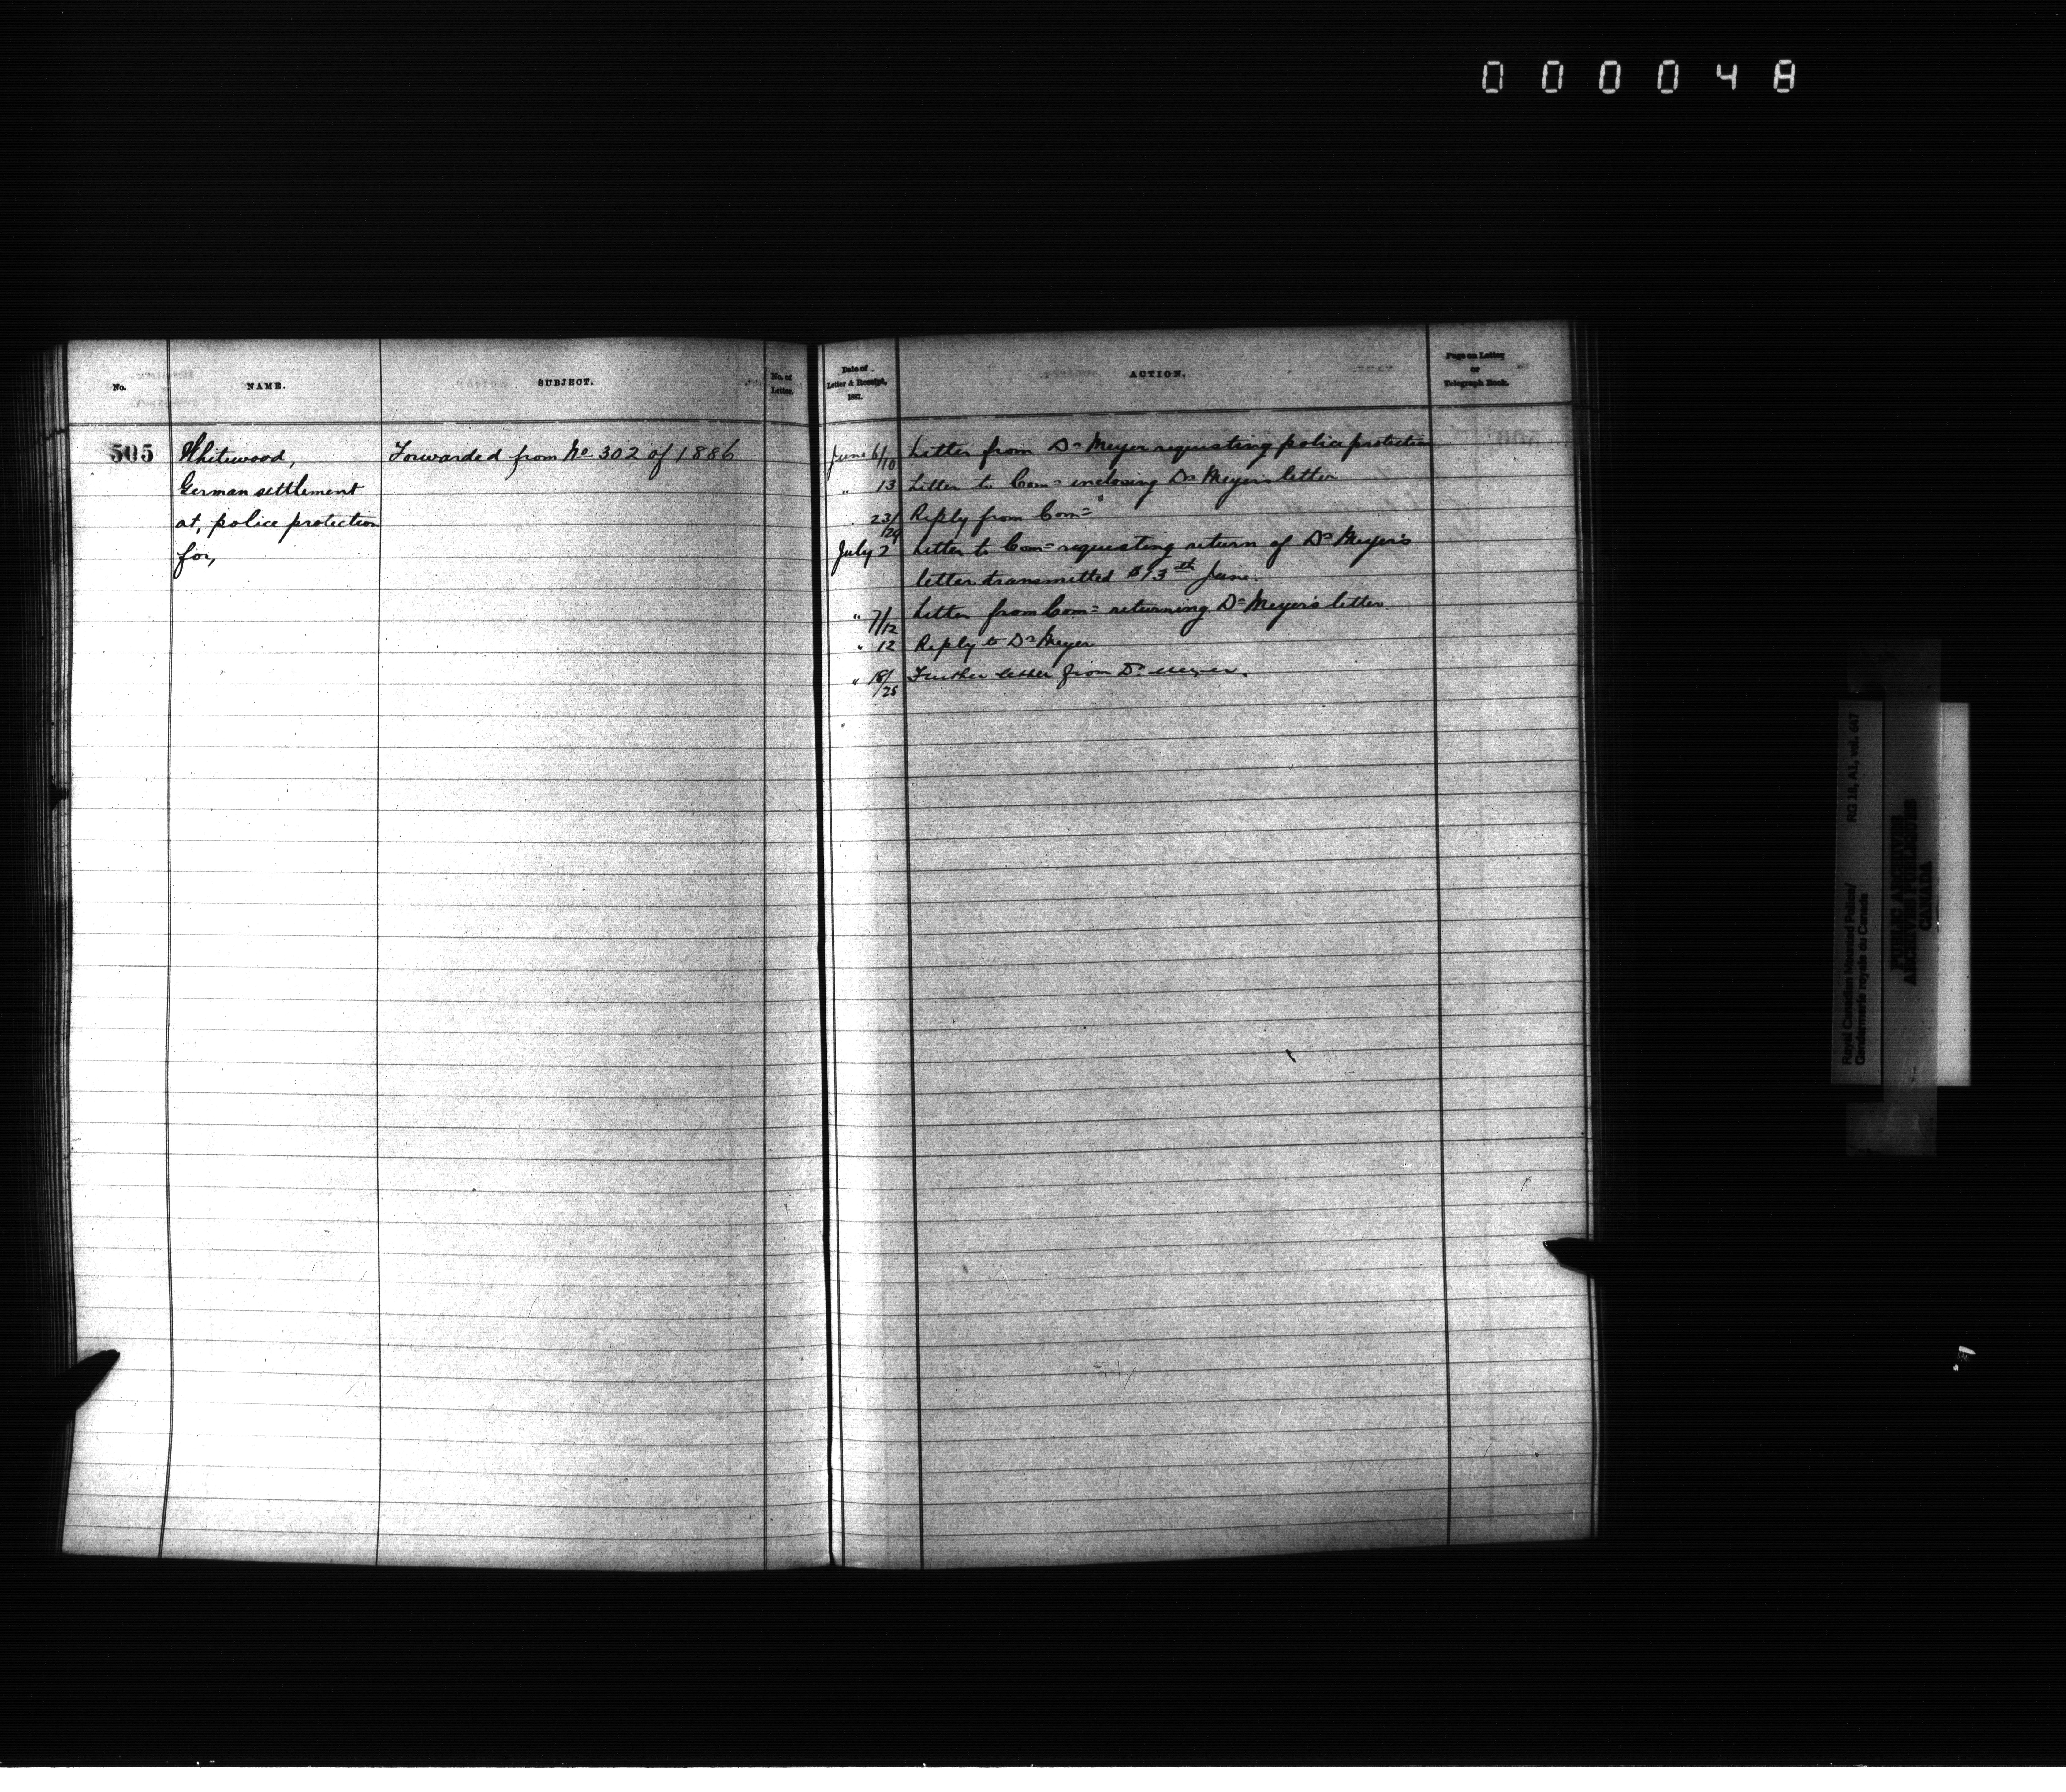 000048
No.
NAME.
SUBJECT.
No. of
Letter.
Date of
Letter & Receipt,
1887.
ACTION.
Page on Letter
or
Telegraph Book.
505
Whitewood,
German settlement
at, police protection
for,
Forwarded from No 302 of 1886
June 6/10 Letter from Dr Meyer requesting police protection
" 13 Letter to Com= inclosing Dr Meyer's letter
" 23/29 Reply from Com=
July 2 Letter to Com= requesting return of Dr Meyer's
letter transmitted 13th June.
" 7/12 Letter from Com= returning Dr Meyer's letter.
" 12 Reply to Dr Meyer
" 18/25 Further letter from Dr. Meyer.
Royal Canadian Mounted Police/
Gendarmerie royale du Canada
RG 18, A1, vol. 647
PUBLIC ARCHIVES
ARCHIVES PUBLIQUES
CANADA